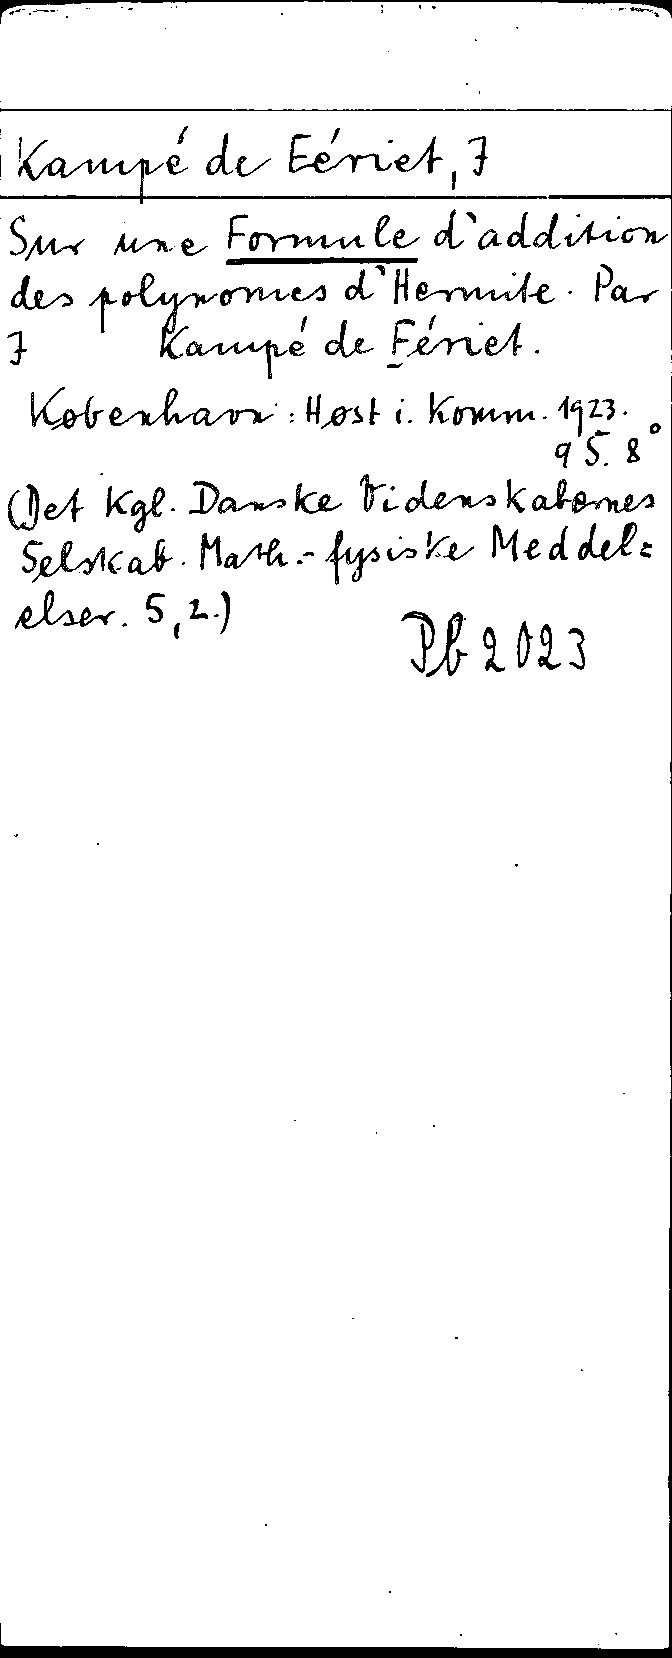 Kampé de Fériet, J
Sur une Formule d'addition
des polynomes d'Hermite. Par
J Kampé de Fériet.
København: Høst i. Komm. 1923.
9 S. 8°
(Det Kgl. Danske Videnskabernes
Selskab. Math.-fysiske Meddel=
elser. 5,2.)
Pb 2023